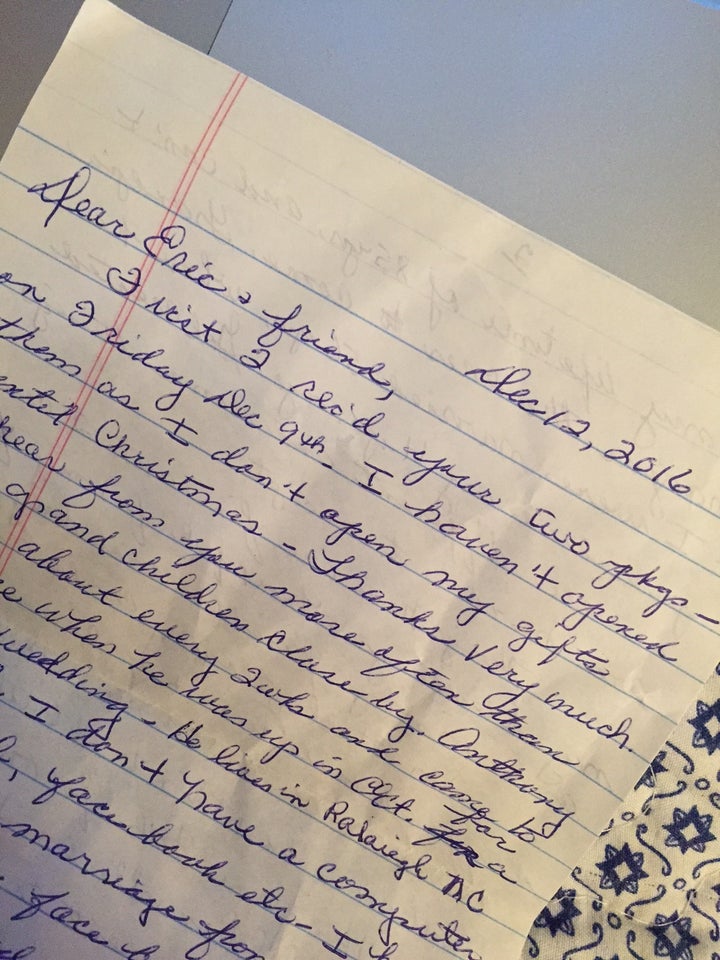 Dec 12, 2016
Dear Eric & friend,
First I rec'd your two pkgs –
on Friday Dec 9th. I haven't opened
them as I don't open my gifts
until Christmas – Thanks very much.
hear from you more often than
grand children close by. Anthony
about every 2wks and came to
when he was up in Oct. for a
wedding – He lives in Raleigh NC
I don't have a computer
face book etc – I
marriage from
face